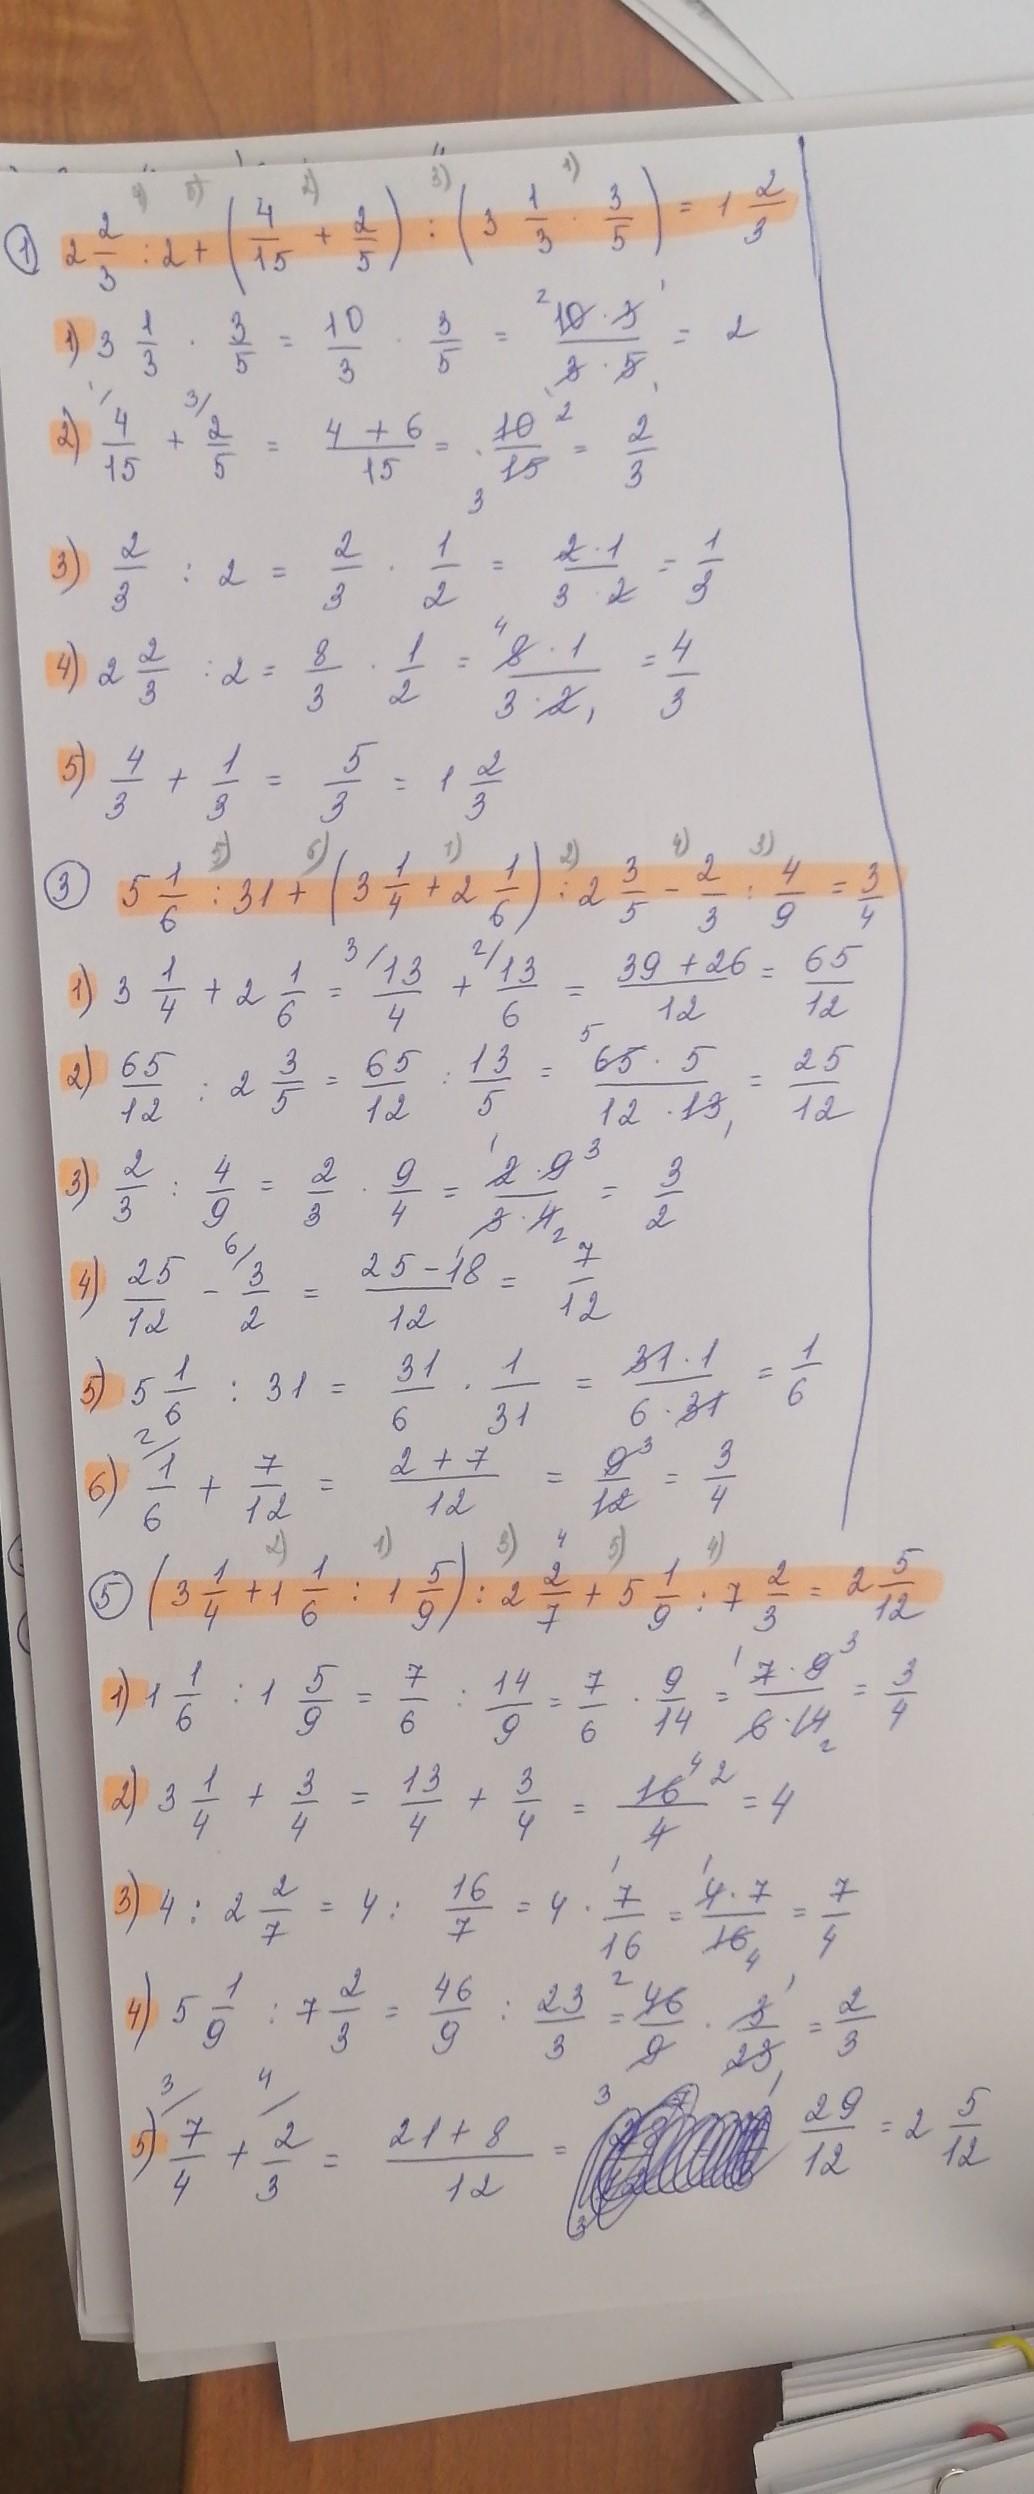 4) 5) 2) 3) 1)
① 2 2/3 : 2 + (4/15 + 2/5) : (3 1/3 · 3/5) = 1 2/3
1) 3 1/3 · 3/5 = 10/3 · 3/5 = (10 · 3)/(3 · 5) = 2
2) 4/15 + 2/5 = (4 + 6)/15 = 10/15 = 2/3
3) 2/3 : 2 = 2/3 · 1/2 = (2 · 1)/(3 · 2) = 1/3
4) 2 2/3 : 2 = 8/3 · 1/2 = (8 · 1)/(3 · 2) = 4/3
5) 4/3 + 1/3 = 5/3 = 1 2/3
5) 6) 1) 2) 4) 3)
③ 5 1/6 : 31 + (3 1/4 + 2 1/6) : 2 3/5 - 2/3 : 4/9 = 3/4
1) 3 1/4 + 2 1/6 = 13/4 + 13/6 = (39 + 26)/12 = 65/12
2) 65/12 : 2 3/5 = 65/12 : 13/5 = (65 · 5)/(12 · 13) = 25/12
3) 2/3 : 4/9 = 2/3 · 9/4 = (2 · 9)/(3 · 4) = 3/2
4) 25/12 - 3/2 = (25 - 18)/12 = 7/12
5) 5 1/6 : 31 = 31/6 · 1/31 = (31 · 1)/(6 · 31) = 1/6
6) 1/6 + 7/12 = (2 + 7)/12 = 9/12 = 3/4
2) 1) 3) 5) 4)
⑤ (3 1/4 + 1 1/6 : 1 5/9) : 2 2/7 + 5 1/9 : 7 2/3 = 2 5/12
1) 1 1/6 : 1 5/9 = 7/6 : 14/9 = 7/6 · 9/14 = (7 · 9)/(6 · 14) = 3/4
2) 3 1/4 + 3/4 = 13/4 + 3/4 = 16/4 = 4
3) 4 : 2 2/7 = 4 : 16/7 = 4 · 7/16 = (4 · 7)/16 = 7/4
4) 5 1/9 : 7 2/3 = 46/9 : 23/3 = 46/9 · 3/23 = 2/3
5) 7/4 + 2/3 = (21 + 8)/12 = 29/12 = 2 5/12